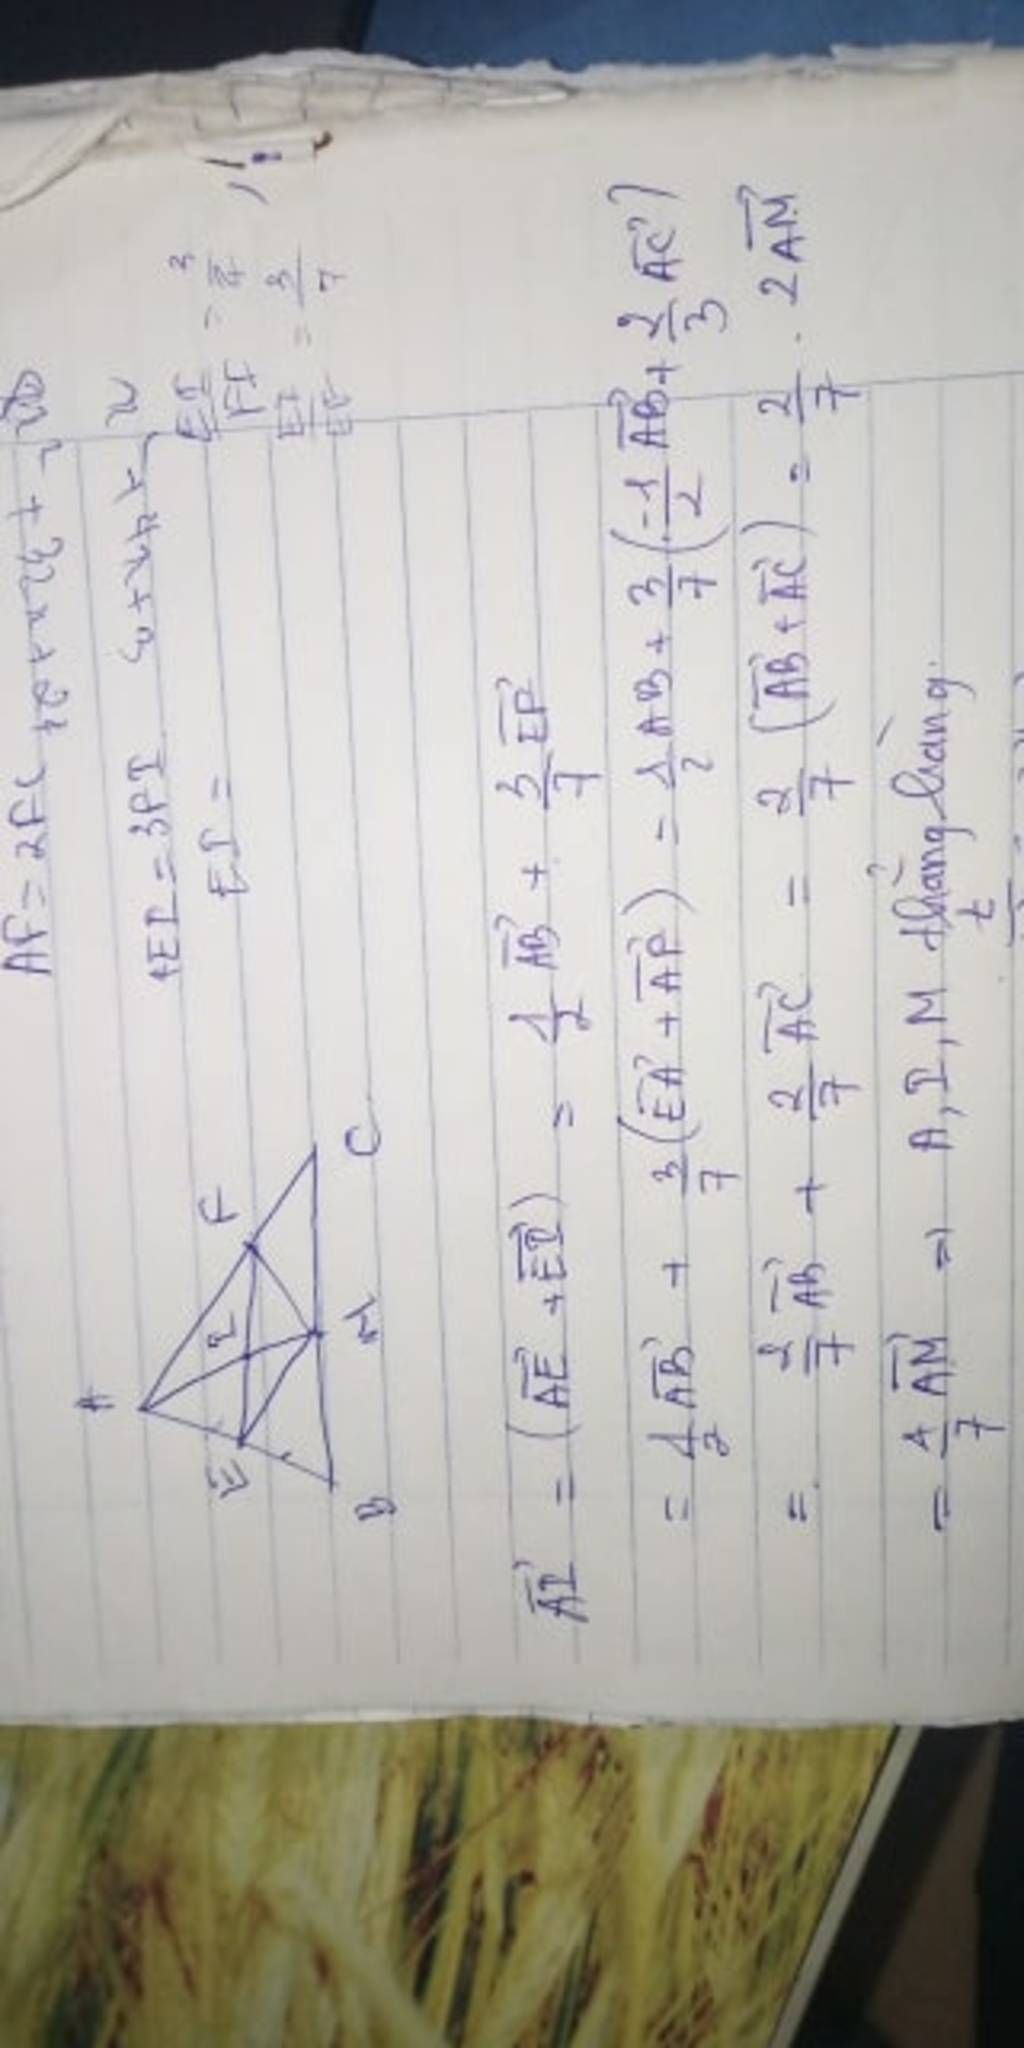 AF = 2FC
4EI = 3FI
EI =
EI/FI = 3/4
EI/EF = 3/7
A
E
I
F
B
M
C
AI⃗ = (AE⃗ + EI⃗) = 1/2 AB⃗ + 3/7 EF⃗
= 1/2 AB⃗ + 3/7 (EA⃗ + AF⃗) = 1/2 AB + 3/7 (-1/2 AB⃗ + 2/3 AC⃗)
= 2/7 AB⃗ + 2/7 AC⃗ = 2/7 (AB⃗ + AC⃗) = 2/7 . 2AM⃗
= 4/7 AM⃗ ⇒ A, I, M thẳng hàng.